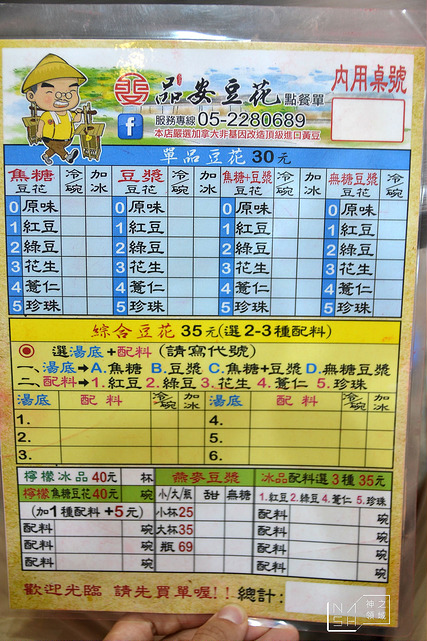 內用桌號
品安豆花 點餐單
服務專線 05-2280689
本店嚴選加拿大非基因改造頂級進口黃豆
單品豆花 30元
焦糖豆花 冷碗 加冰 豆漿豆花 冷碗 加冰 焦糖+豆漿豆花 冷碗 加冰 無糖豆漿豆花 冷碗 加冰
0 原味 0 原味 0 原味 0 原味
1 紅豆 1 紅豆 1 紅豆 1 紅豆
2 綠豆 2 綠豆 2 綠豆 2 綠豆
3 花生 3 花生 3 花生 3 花生
4 薏仁 4 薏仁 4 薏仁 4 薏仁
5 珍珠 5 珍珠 5 珍珠 5 珍珠
綜合豆花 35元(選2-3種配料)
選湯底+配料 (請寫代號)
一、湯底➔A.焦糖 B.豆漿 C.焦糖+豆漿 D.無糖豆漿
二、配料➔1.紅豆 2.綠豆 3.花生 4.薏仁 5.珍珠
湯底 配料 冷碗 加冰 湯底 配料 冷碗 加冰
1. 4.
2. 5.
3. 6.
檸檬冰品40元 杯 燕麥豆漿 冰品配料選3種35元
檸檬焦糖豆花40元 碗 小/大/瓶 甜 無糖 1.紅豆 2.綠豆 4.薏仁 5.珍珠
(加1種配料+5元) 小杯25 配料 碗
配料 碗 大杯35 配料 碗
配料 碗 瓶 69 配料 碗
配料 碗 配料 碗
歡迎光臨 請先買單喔!! 總計:
神之領域